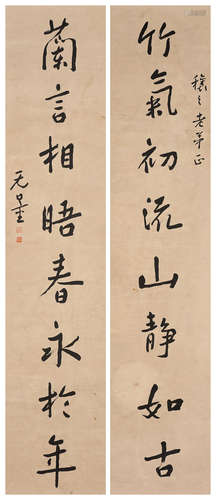 竹氣初流山靜如古
穰之老弟正
蘭言相晤春永於年
无量